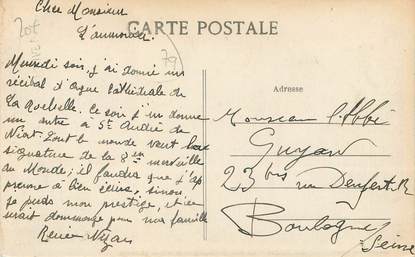 Cher Monsieur
l'aumonier.
CARTE POSTALE
Mercredi soir, j'ai donné un
récital d'orgue Cathédrale de
La Rochelle. Ce soir j'en donne
un autre à St André de
Niort. Tout le monde veut la
signature de la 8en merveille
du Monde; il faudra que j'ap
prenne à bien écrire, sinon
je perds mon prestige, et ce
serait dommage pour ma famille
Renée Nizan
Adresse
Monsieur l'Abbé
Guyard
23 bis rue Denfert-R
Boulogne
Seine